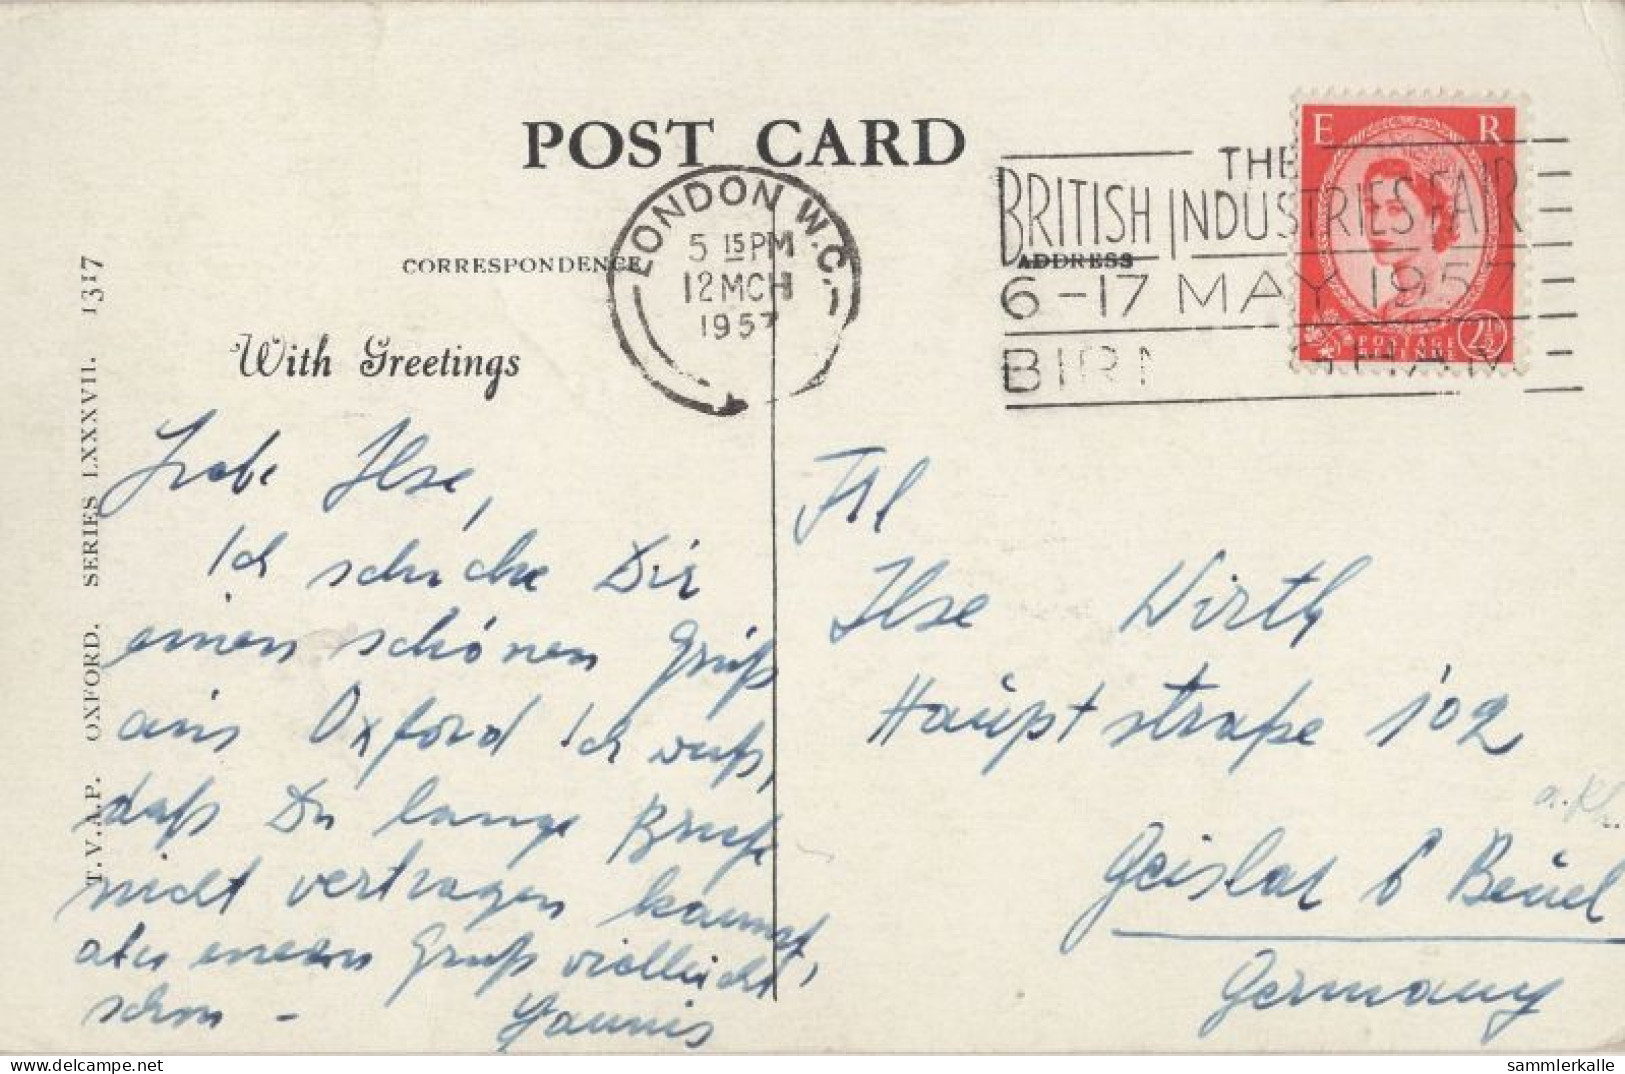 POST CARD
CORRESPONDENCE
ADDRESS
LONDON W.C.
5 15 PM
12 MCH
1957
THE
BRITISH INDUSTRIES FAIR
6-17 MAY 1957
BIRMINGHAM
E R
POSTAGE
REVENUE
2½
With Greetings
T.V.A.P. OXFORD. SERIES LXXXVII. 1317
Liebe Ilse,
Ich schicke Dir
einen schönen Gruß
aus Oxford Ich weiß,
daß Du lange Briefe
nicht vertragen kannst,
aber einen Gruß vielleicht
schon - Yannis
Frl
Ilse Wirth
Hauptstraße 102
Geislar b Beuel
Germany
sammlerkalle